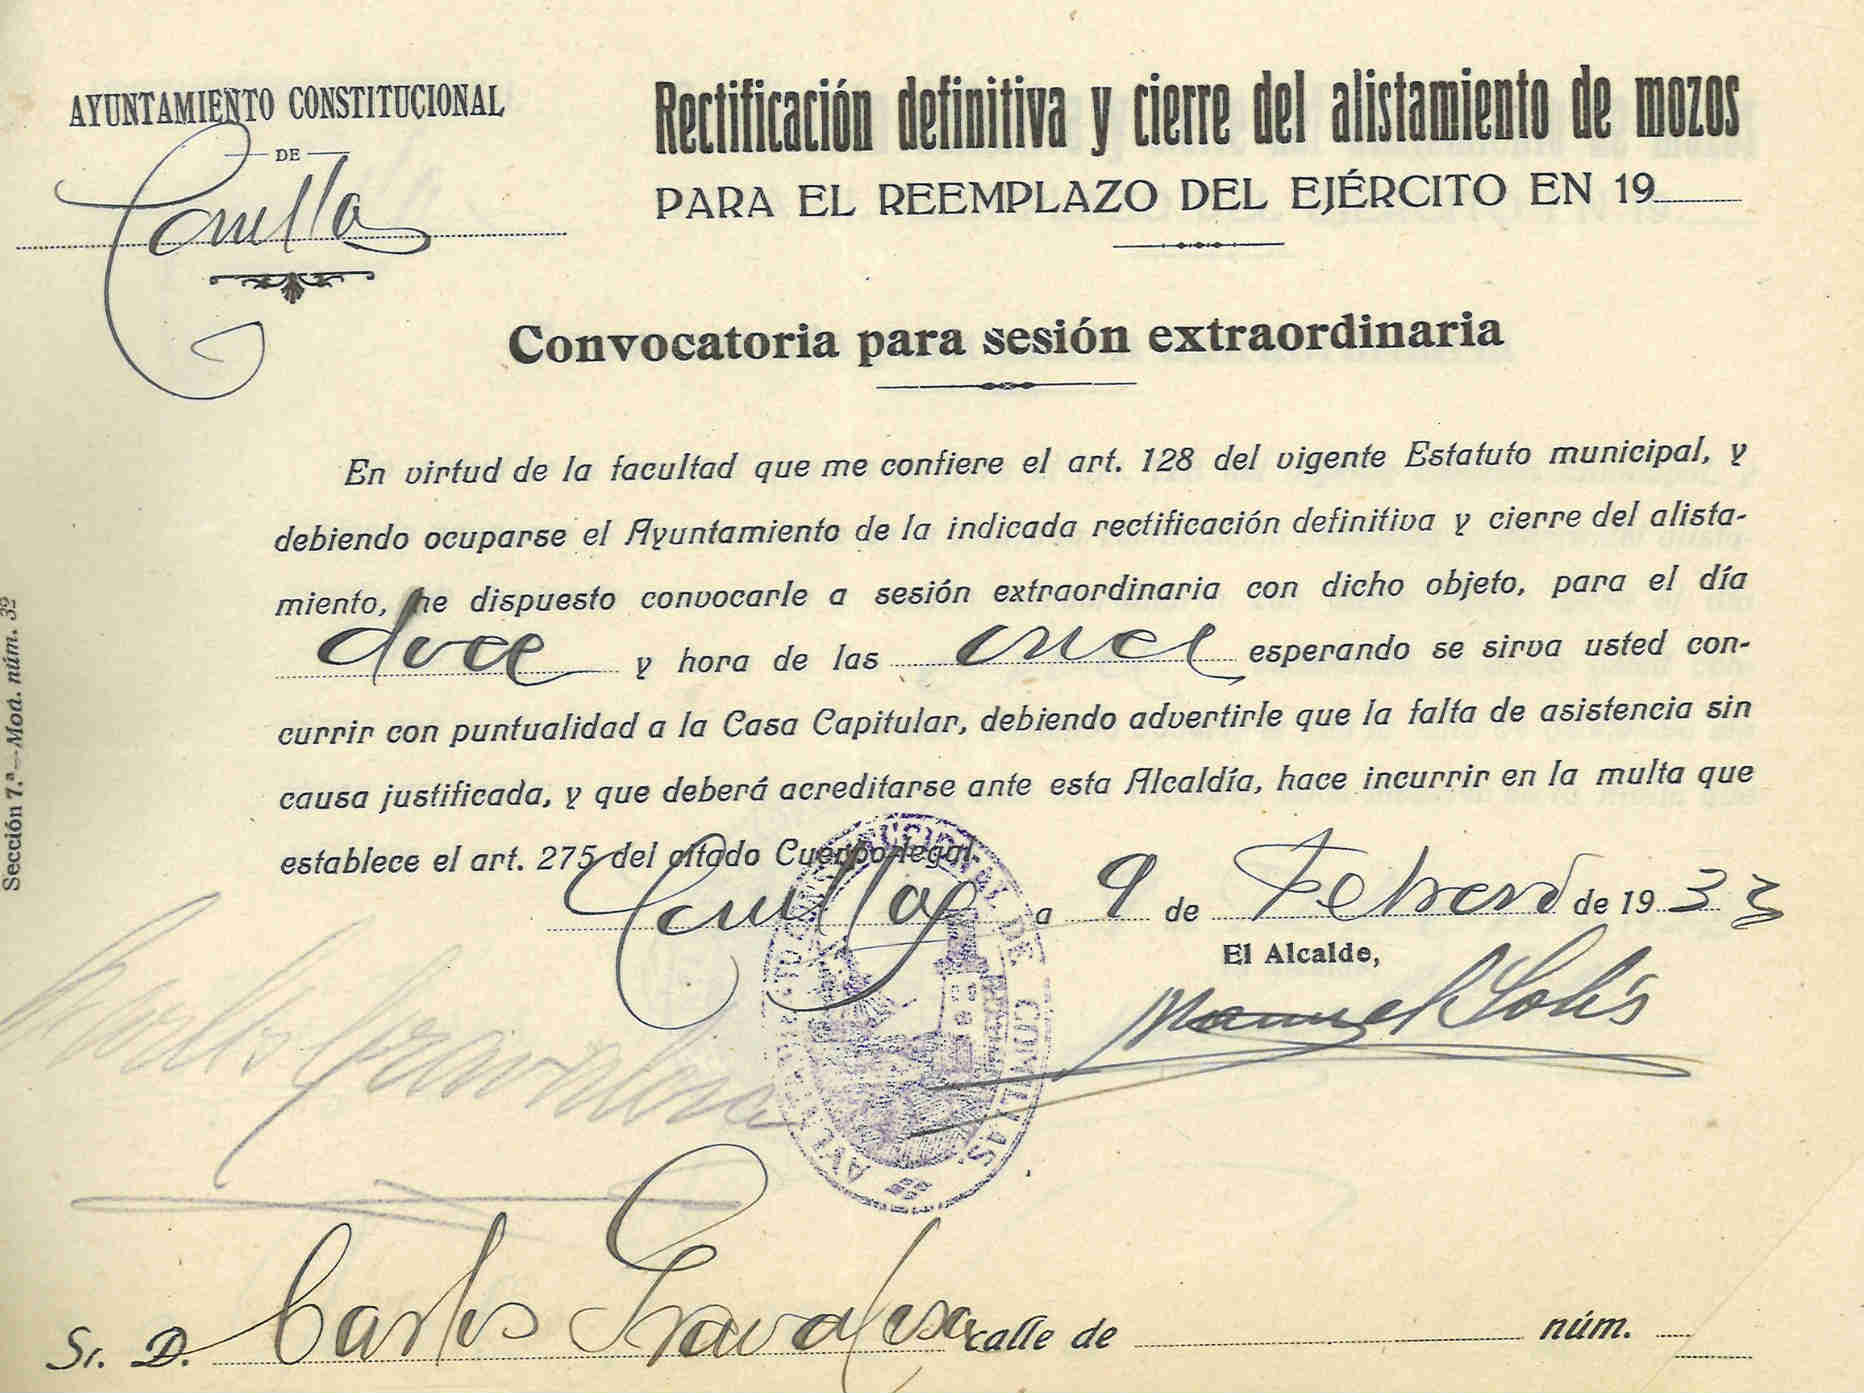 AYUNTAMIENTO CONSTITUCIONAL
DE
Conilla
Rectificación definitiva y cierre del alistamiento de mozos
PARA EL REEMPLAZO DEL EJÉRCITO EN 19
Convocatoria para sesión extraordinaria
En virtud de la facultad que me confiere el art. 128 del vigente Estatuto municipal, y
debiendo ocuparse el Ayuntamiento de la indicada rectificación definitiva y cierre del alista-
miento, he dispuesto convocarle a sesión extraordinaria con dicho objeto, para el día
doce y hora de las once esperando se sirva usted con-
currir con puntualidad a la Casa Capitular, debiendo advertirle que la falta de asistencia sin
causa justificada, y que deberá acreditarse ante esta Alcaldía, hace incurrir en la multa que
establece el art. 275 del citado Cuerpo legal.
a 9 de Febrero de 1933
El Alcalde,
Manuel Solís
Sr. D. Carlos calle de núm.
Sección 7.ª—Mod. núm. 32